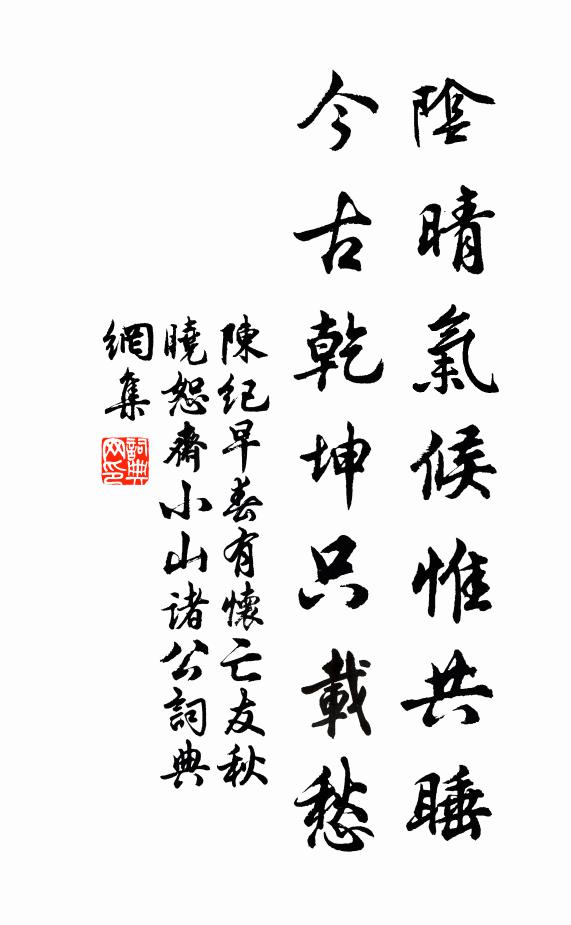 陰晴氣候惟共睡
今古乾坤只載愁
陳紀早春有懷亡友秋
曉恕齋小山諸公詞典
網集
詞典
网印